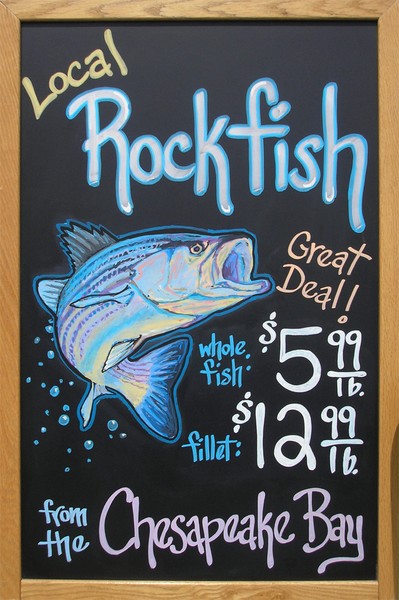 Local
Rockfish
Great
Deal!
whole fish: $5 99/lb.
fillet: $12 99/lb.
from the Chesapeake Bay